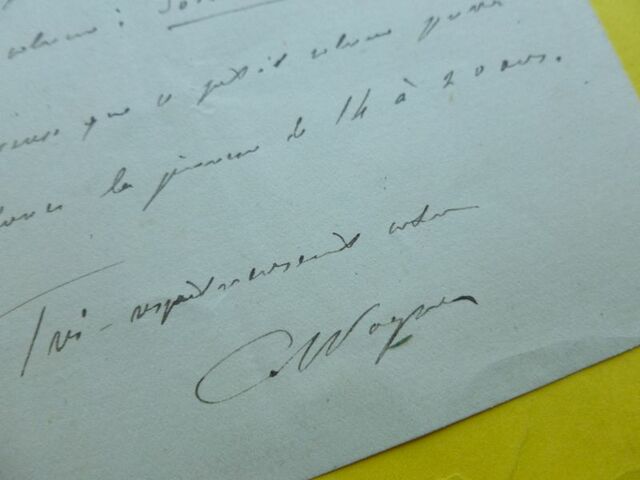 volume : 
que ce petit volume
la jeunesse de 14 à 20 ans.
Très-respectueusement votre
Wagner